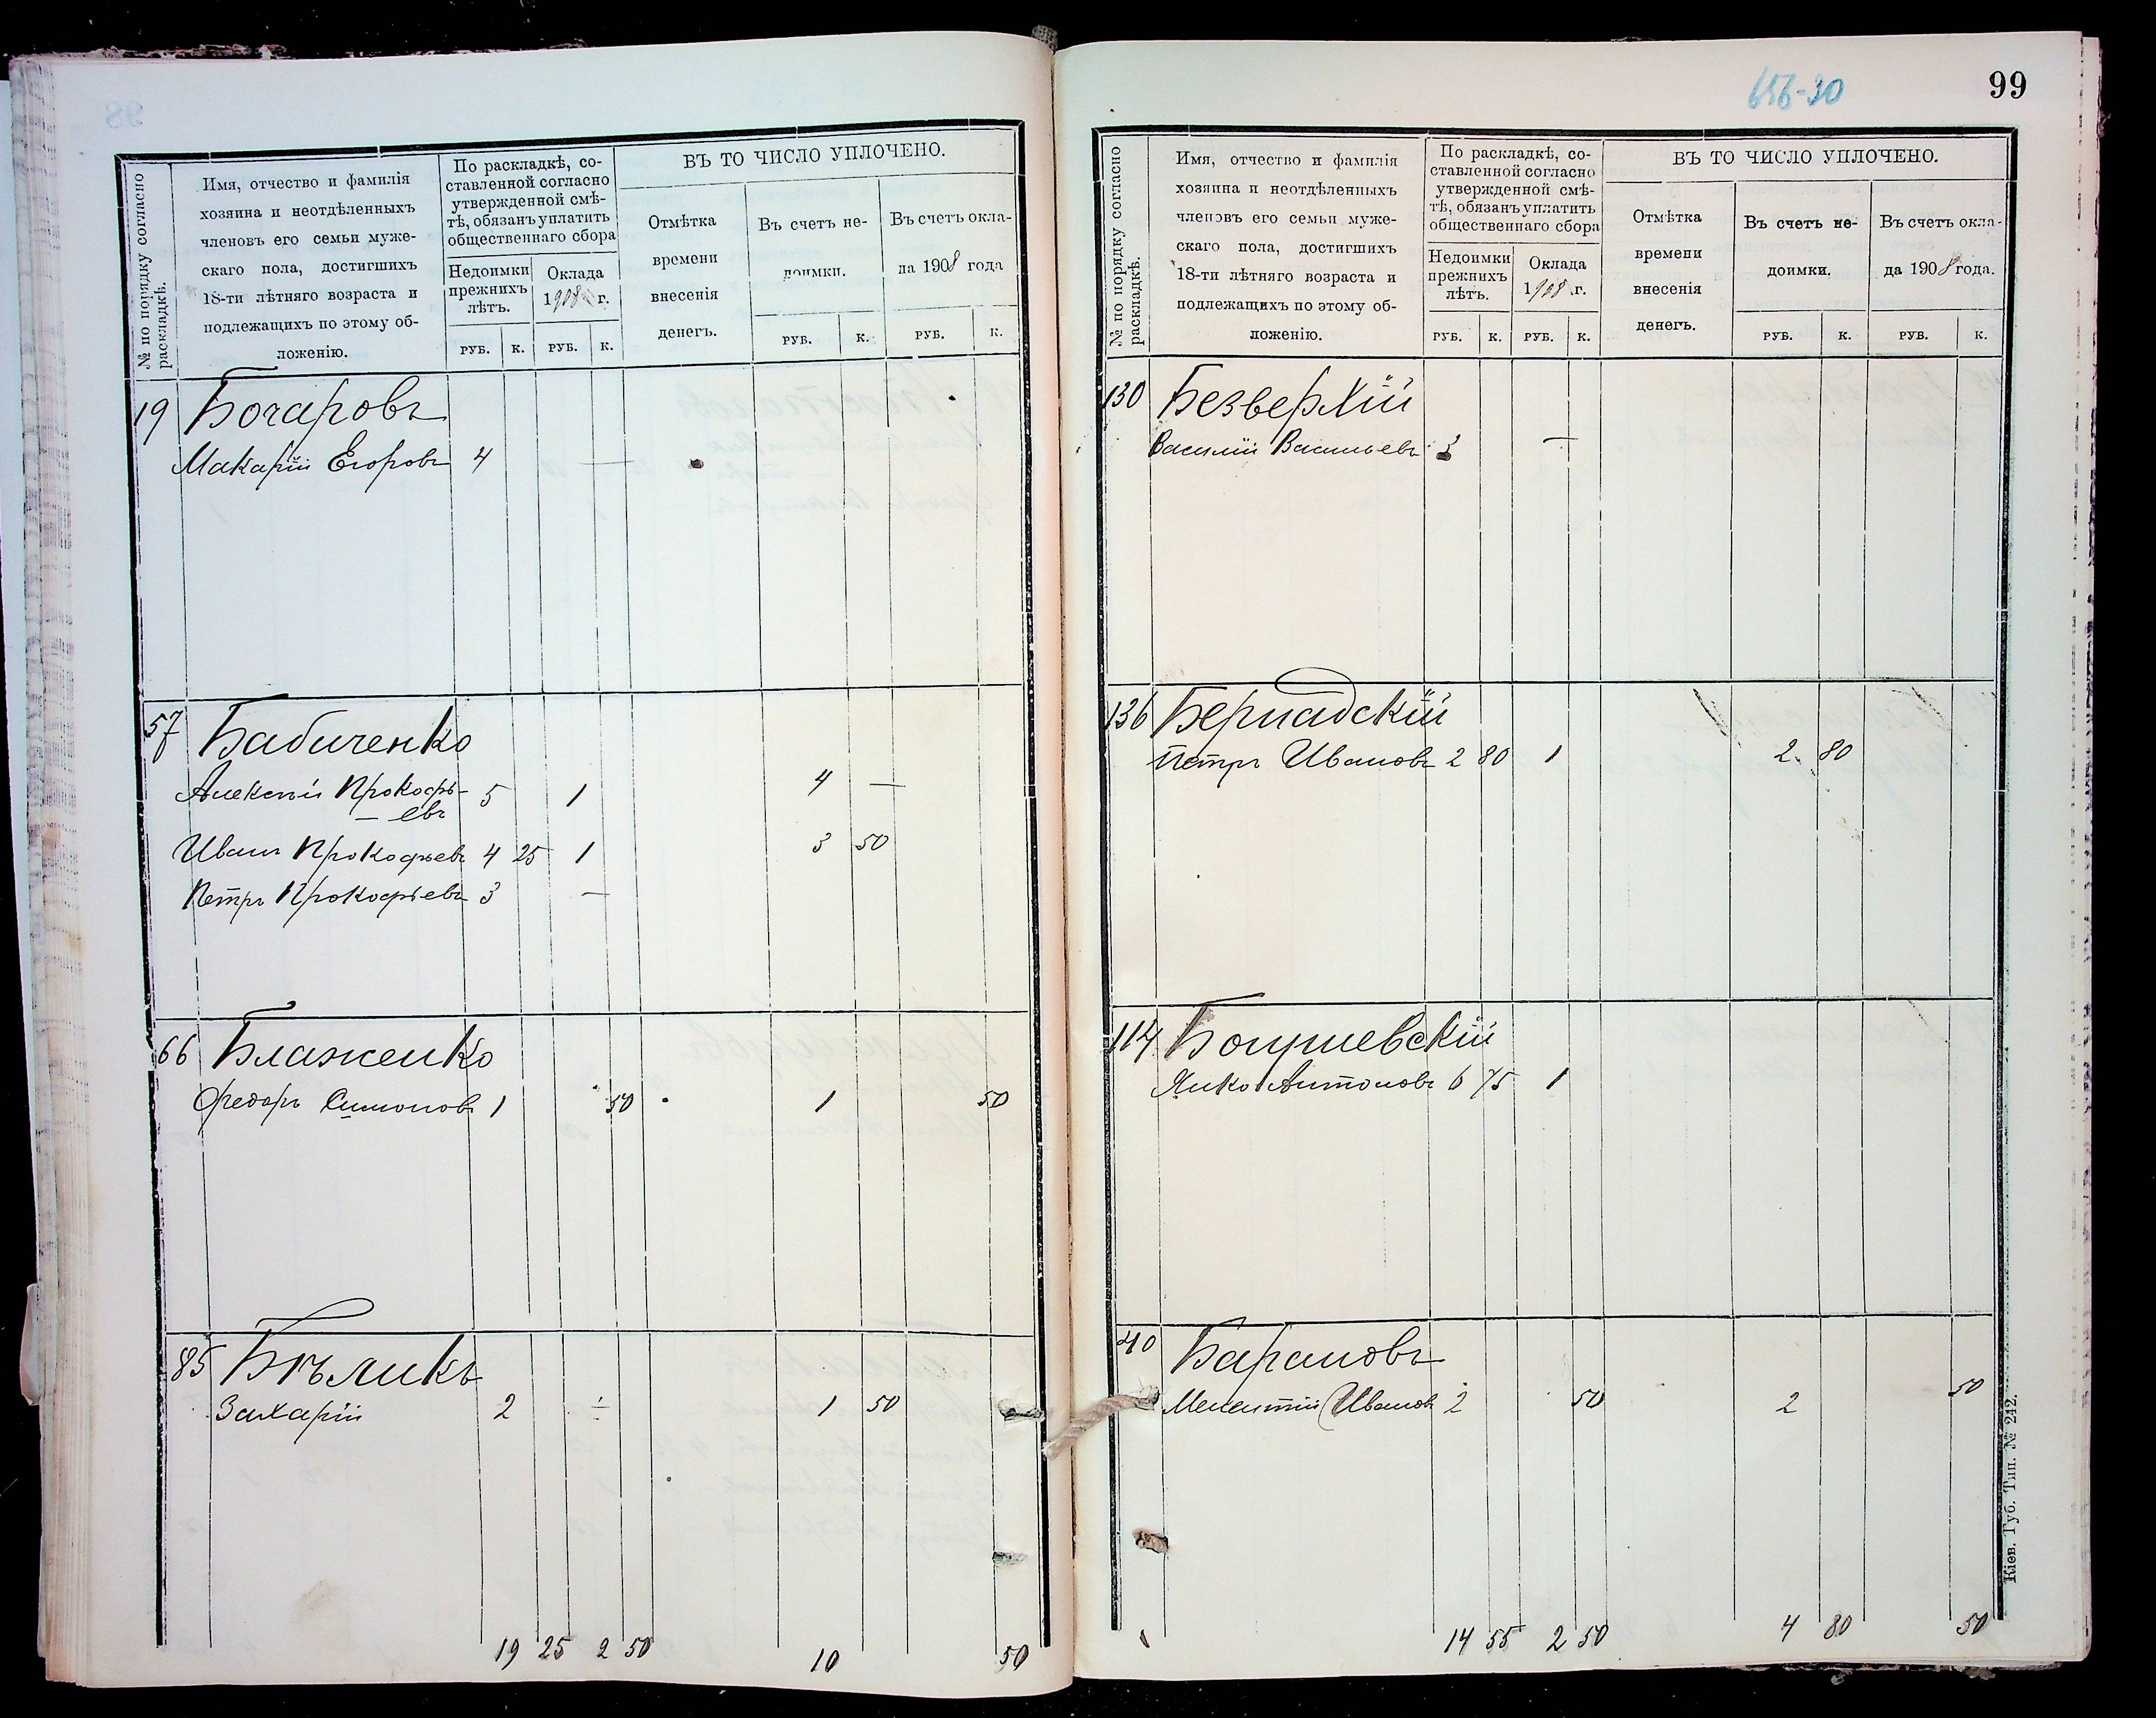 № по порядку согласно раскладкѣ.
Имя, отчество и фамилія
хозяина и неотдѣленныхъ
членовъ его семьи муже-
скаго пола, достигшихъ
18-ти лѣтняго возраста и
подлежащихъ по этому об-
ложенію.
По раскладкѣ, со-
ставленной согласно
утвержденной смѣ-
тѣ, обязанъ уплатить
общественнаго сбора
Недоимки
прежнихъ
лѣтъ.
Оклада
1908 г.
ВЪ ТО ЧИСЛО УПЛОЧЕНО.
Отмѣтка
времени
внесенія
денегъ.
Въ счетъ не-
доимки.
Въ счетъ окла-
да 1908 года
РУБ. К. РУБ. К. РУБ. К. РУБ. К.
19 Бочаровъ
Макарій Егоровъ 4 —
57 Бабиченко
Алексѣй Прокофь- 5 1 4 —
— евъ
Иванъ Прокофьевъ 4 25 1 3 50
Петръ Прокофьевъ 3 —
66 Блаженко
Федоръ Симоновъ 1 50 1 50
85 Бѣликъ
Захарій 2 ÷ 1 50
19 25 2 50 10 50
656-30
99
№ по порядку согласно раскладкѣ.
Имя, отчество и фамилія
хозяина и неотдѣленныхъ
членовъ его семьи муже-
скаго пола, достигшихъ
18-ти лѣтняго возраста и
подлежащихъ по этому об-
ложенію.
По раскладкѣ, со-
ставленной согласно
утвержденной смѣ-
тѣ, обязанъ уплатить
общественнаго сбора
Недоимки
прежнихъ
лѣтъ.
Оклада
1908 г.
ВЪ ТО ЧИСЛО УПЛОЧЕНО.
Отмѣтка
времени
внесенія
денегъ.
Въ счетъ не-
доимки.
Въ счетъ окла-
да 1908 года.
РУБ. К. РУБ. К. РУБ. К. РУБ. К.
130 Безверхій
Василій Васильевъ 3 —
136 Бернадскій
Петръ Ивановъ 2 80 1 2 80
114 Богушевскій
Янко Антоновъ 6 75 1
40 Барановъ
Мелентій Ивановъ 2 50 2 50
14 55 2 50 4 80 50
Кіев. Губ. Тип. № 242.